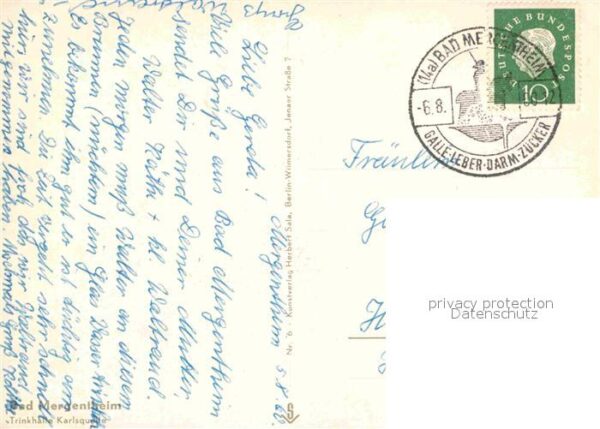 Mergentheim 5.8.60.
Liebe Gerda!
Viele Grüße aus Bad Mergentheim
sendet Dir und Deiner Mutter,
Walter Käthe + kl. Waltraud.
Jeden Morgen muß Walter an diesen
Brunnen (trinken) ein Glas Wasser
Es bekommt ihm gut er ist tüchtig am
Zunehmen. Die Zeit vergeht sehr schnell
hier wir sind froh das wir Waltraud
mitgenommen haben. Nochmals Gruß Käthe
Bad Mergentheim
Trinkhalle Karlsquelle
Nr. 6 - Kunstverlag Herbert Sala, Berlin-Wilmersdorf, Jenaer Straße 7
(14a) BAD MERGENTHEIM
-6.8.
GALLE·LEBER·DARM·ZUCKER
DEUTSCHE BUNDESPOST
10
Fräulein
privacy protection
Datenschutz